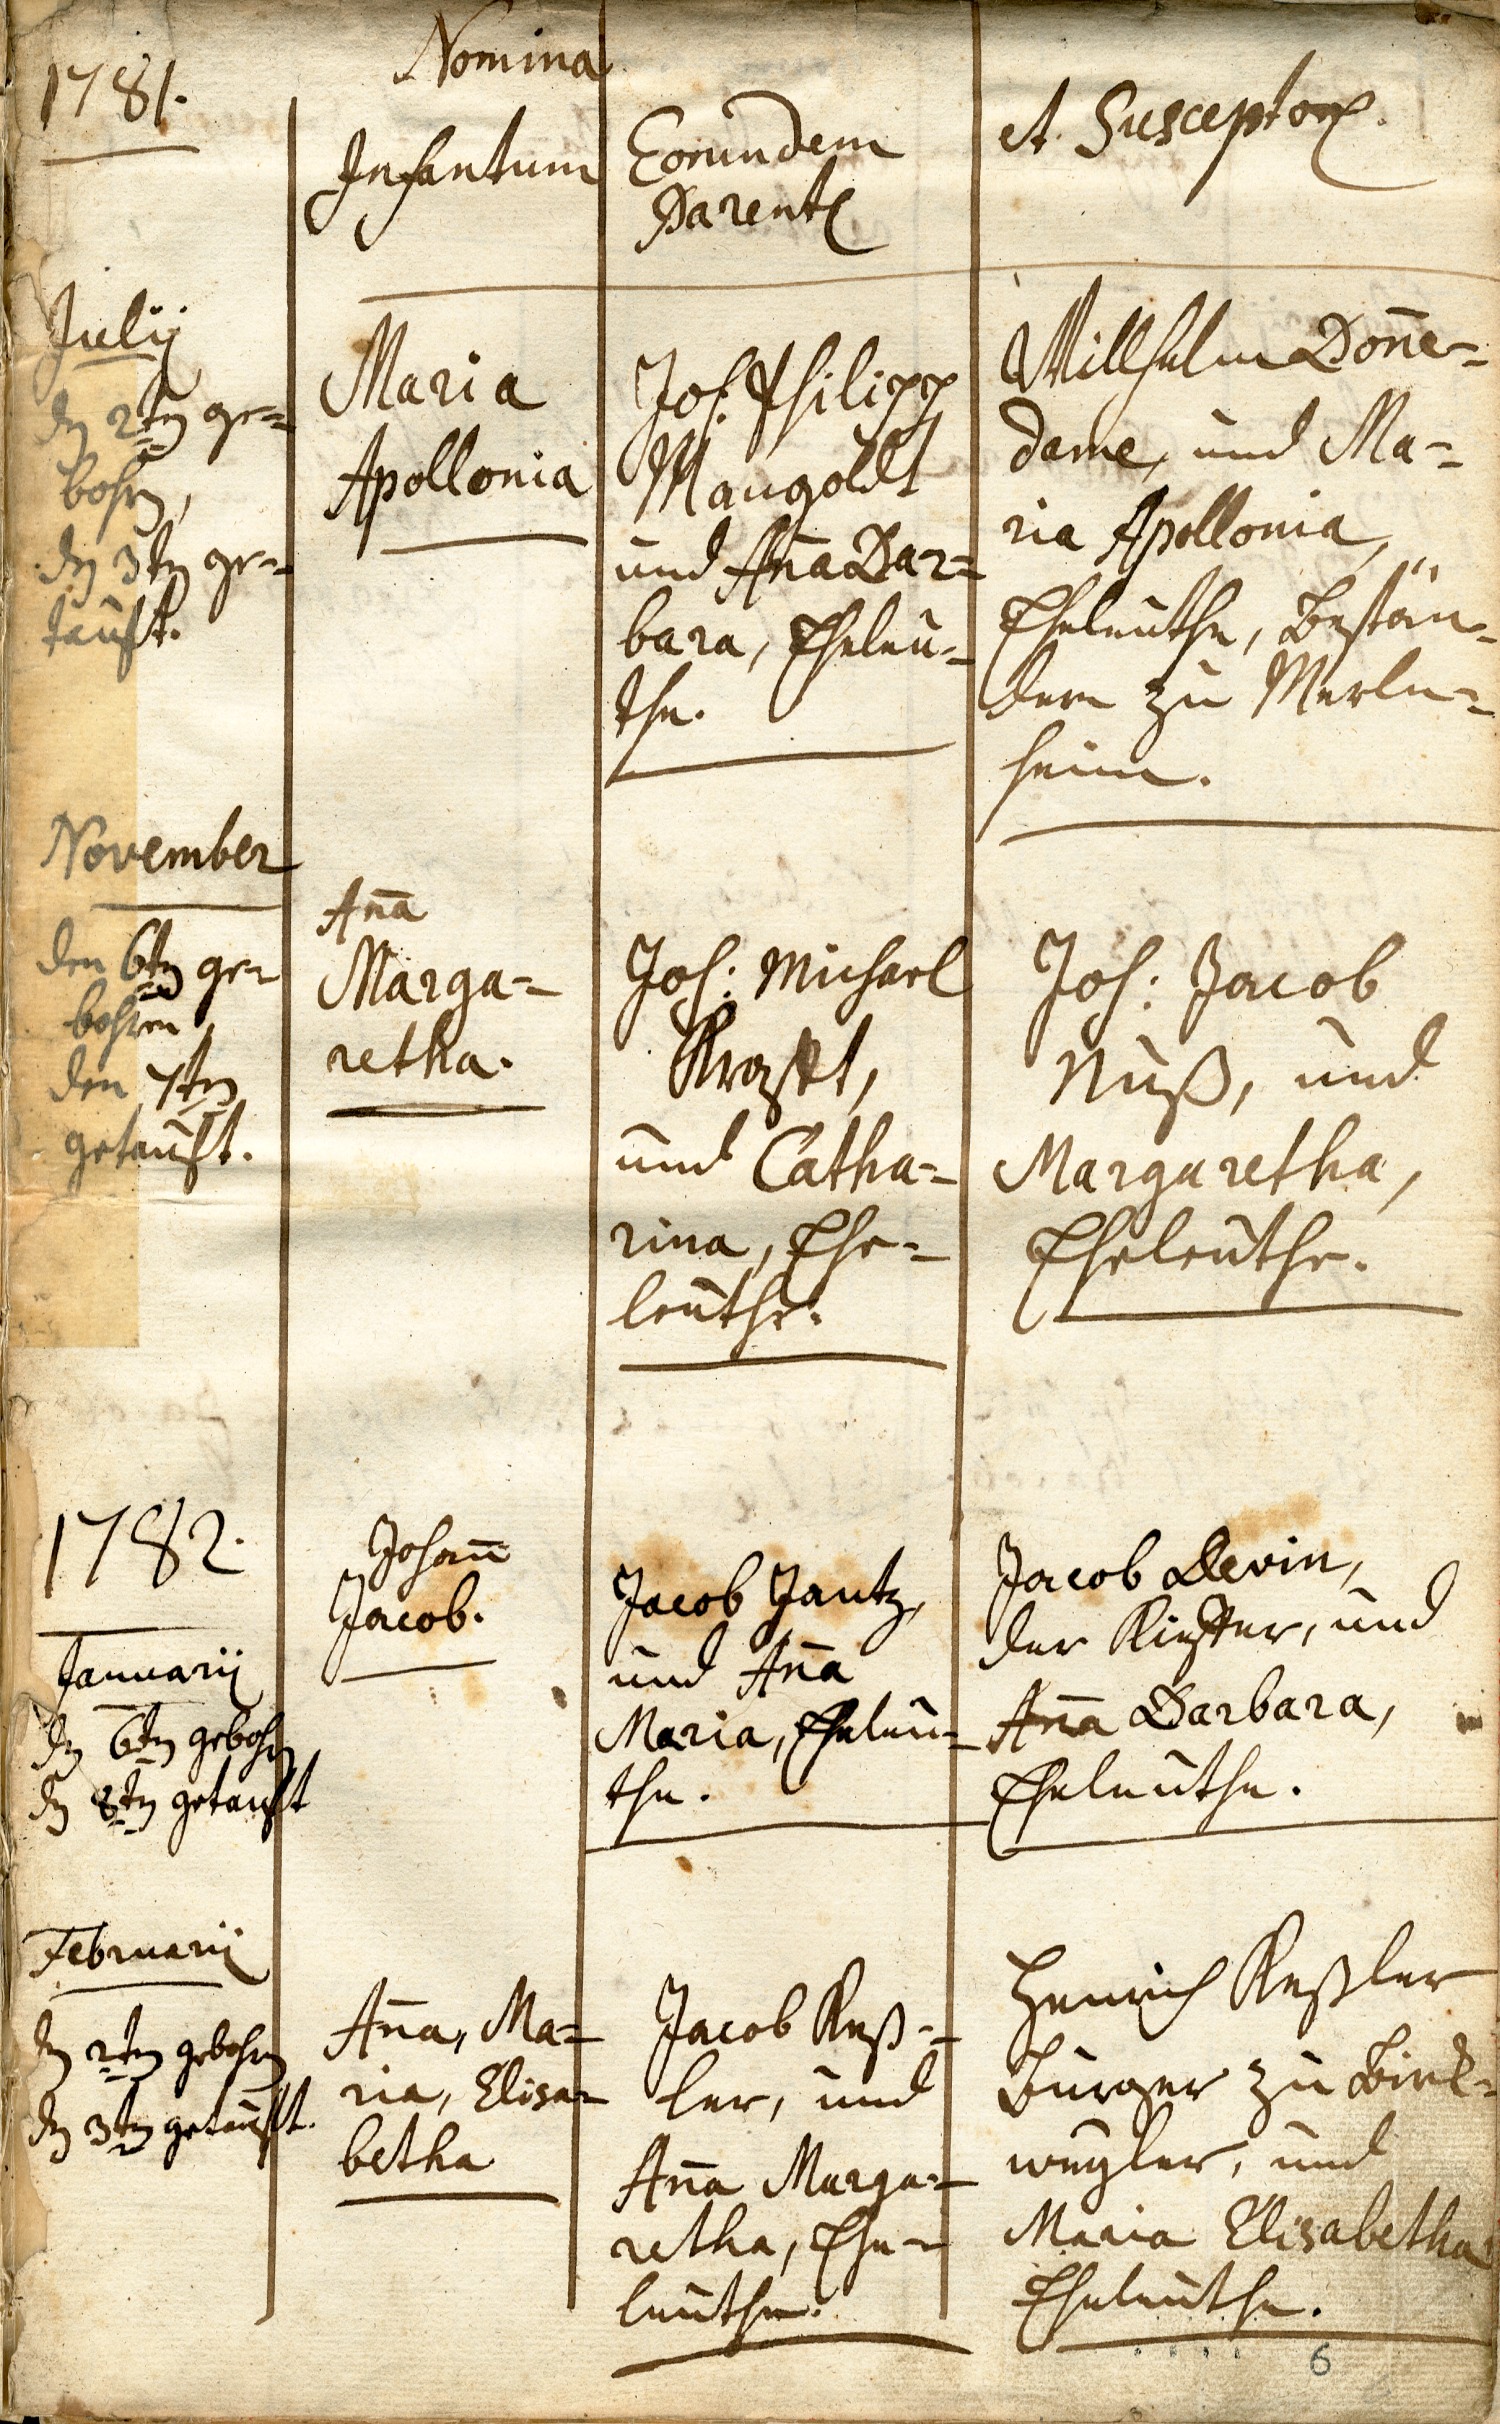 1781.
Nomina
Infantum
Eorundem
Parent
et Susceptor.
Julij
dn 2tn ge=
bohrn,
dn 3tn ge=
tauft.
Maria
Apollonia
Joh: Philipp
Mangoldt
und Aña Bar=
bara, Eheleu=
the.
Willhelm Doñe=
dame, und Ma=
ria Apollonia,
Eheleuthe, Bestän=
dern zu Merln=
heim.
November
den 6tn ge=
bohren,
den 7tn
getauft.
Aña
Marga=
retha.
Joh: Michael
und Catha=
rina, Ehe=
leuthe.
Joh: Jacob
Nuß, und
Margaretha,
Eheleuthe.
1782.
Januarij
dn 6tn gebohrn
dn 8tn getauft
Johañ
Jacob.
Jacob Jantz,
und Aña
Maria, Eheleu=
the.
Jacob Devin,
der Kiefter, und
Aña Barbara,
Eheleuthe.
Februarij
dn 2tn gebohrn
dn 3tn getauft.
Aña, Ma=
ria, Elisa=
betha
Jacob Keß=
ler, und
Aña Marga=
retha, Ehe=
leuthe.
Henrich Keßler
Burger zu Birk=
weyler, und
Maria Elisabetha
Eheleuthe.
6